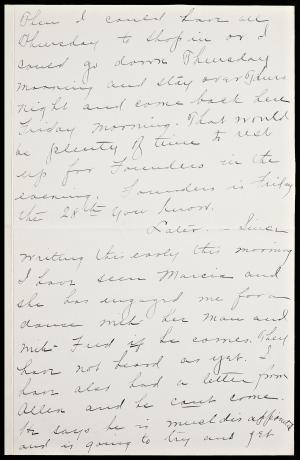 Then I could have all
Thursday to shop in or I
could go down Thursday
morning and stay over Thurs
night and come back here
Friday morning. That would
be plenty of time to rest
up for Founders in the
evening. Founders is Friday
the 28th you know.
Later. – Since
writing this early this morning
I have seen Marcia and
she has engaged me for a
dance with her man and
with Fred if he comes. They
have not heard as yet. I
have also had a letter from
Allen and he can't come.
He says he is much disappointed
and is going to try and get